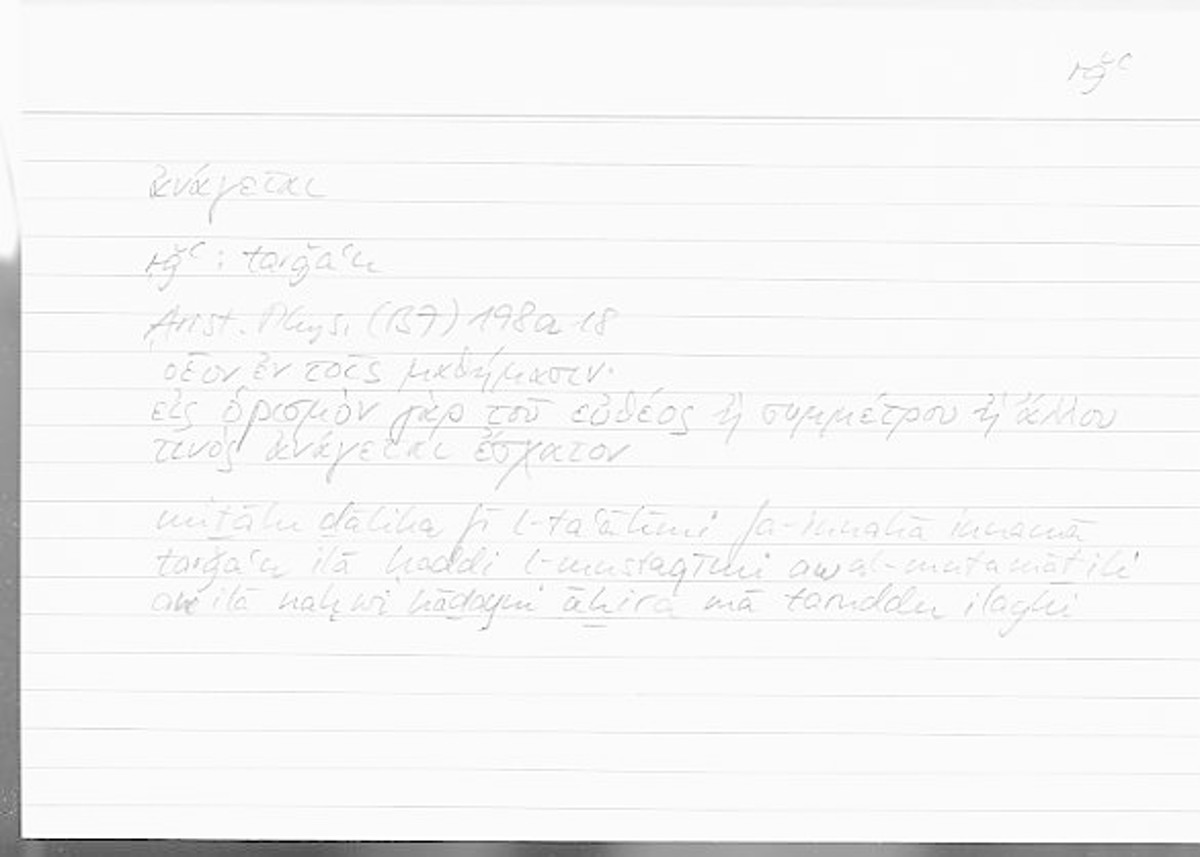 rǧʿ
ἀνάγεται
rǧʿ : tarǧaʿu
Arist. Phys. (B7) 198a 18
οἷον ἐν τοῖς μαθήμασιν·
εἰς ὁρισμὸν γὰρ τοῦ εὐθέος ἢ συμμέτρου ἢ ἄλλου
τινὸς ἀνάγεται ἔσχατον
miṯālu ḏālika fī l-taʿālīmi fa-innahā innamā
tarǧaʿu ilā ḥaddi l-mustaqīmi aw al-mutamāṯili
aw ilā naḥwi hāḏayni āḫira mā tanuddu ilayhi